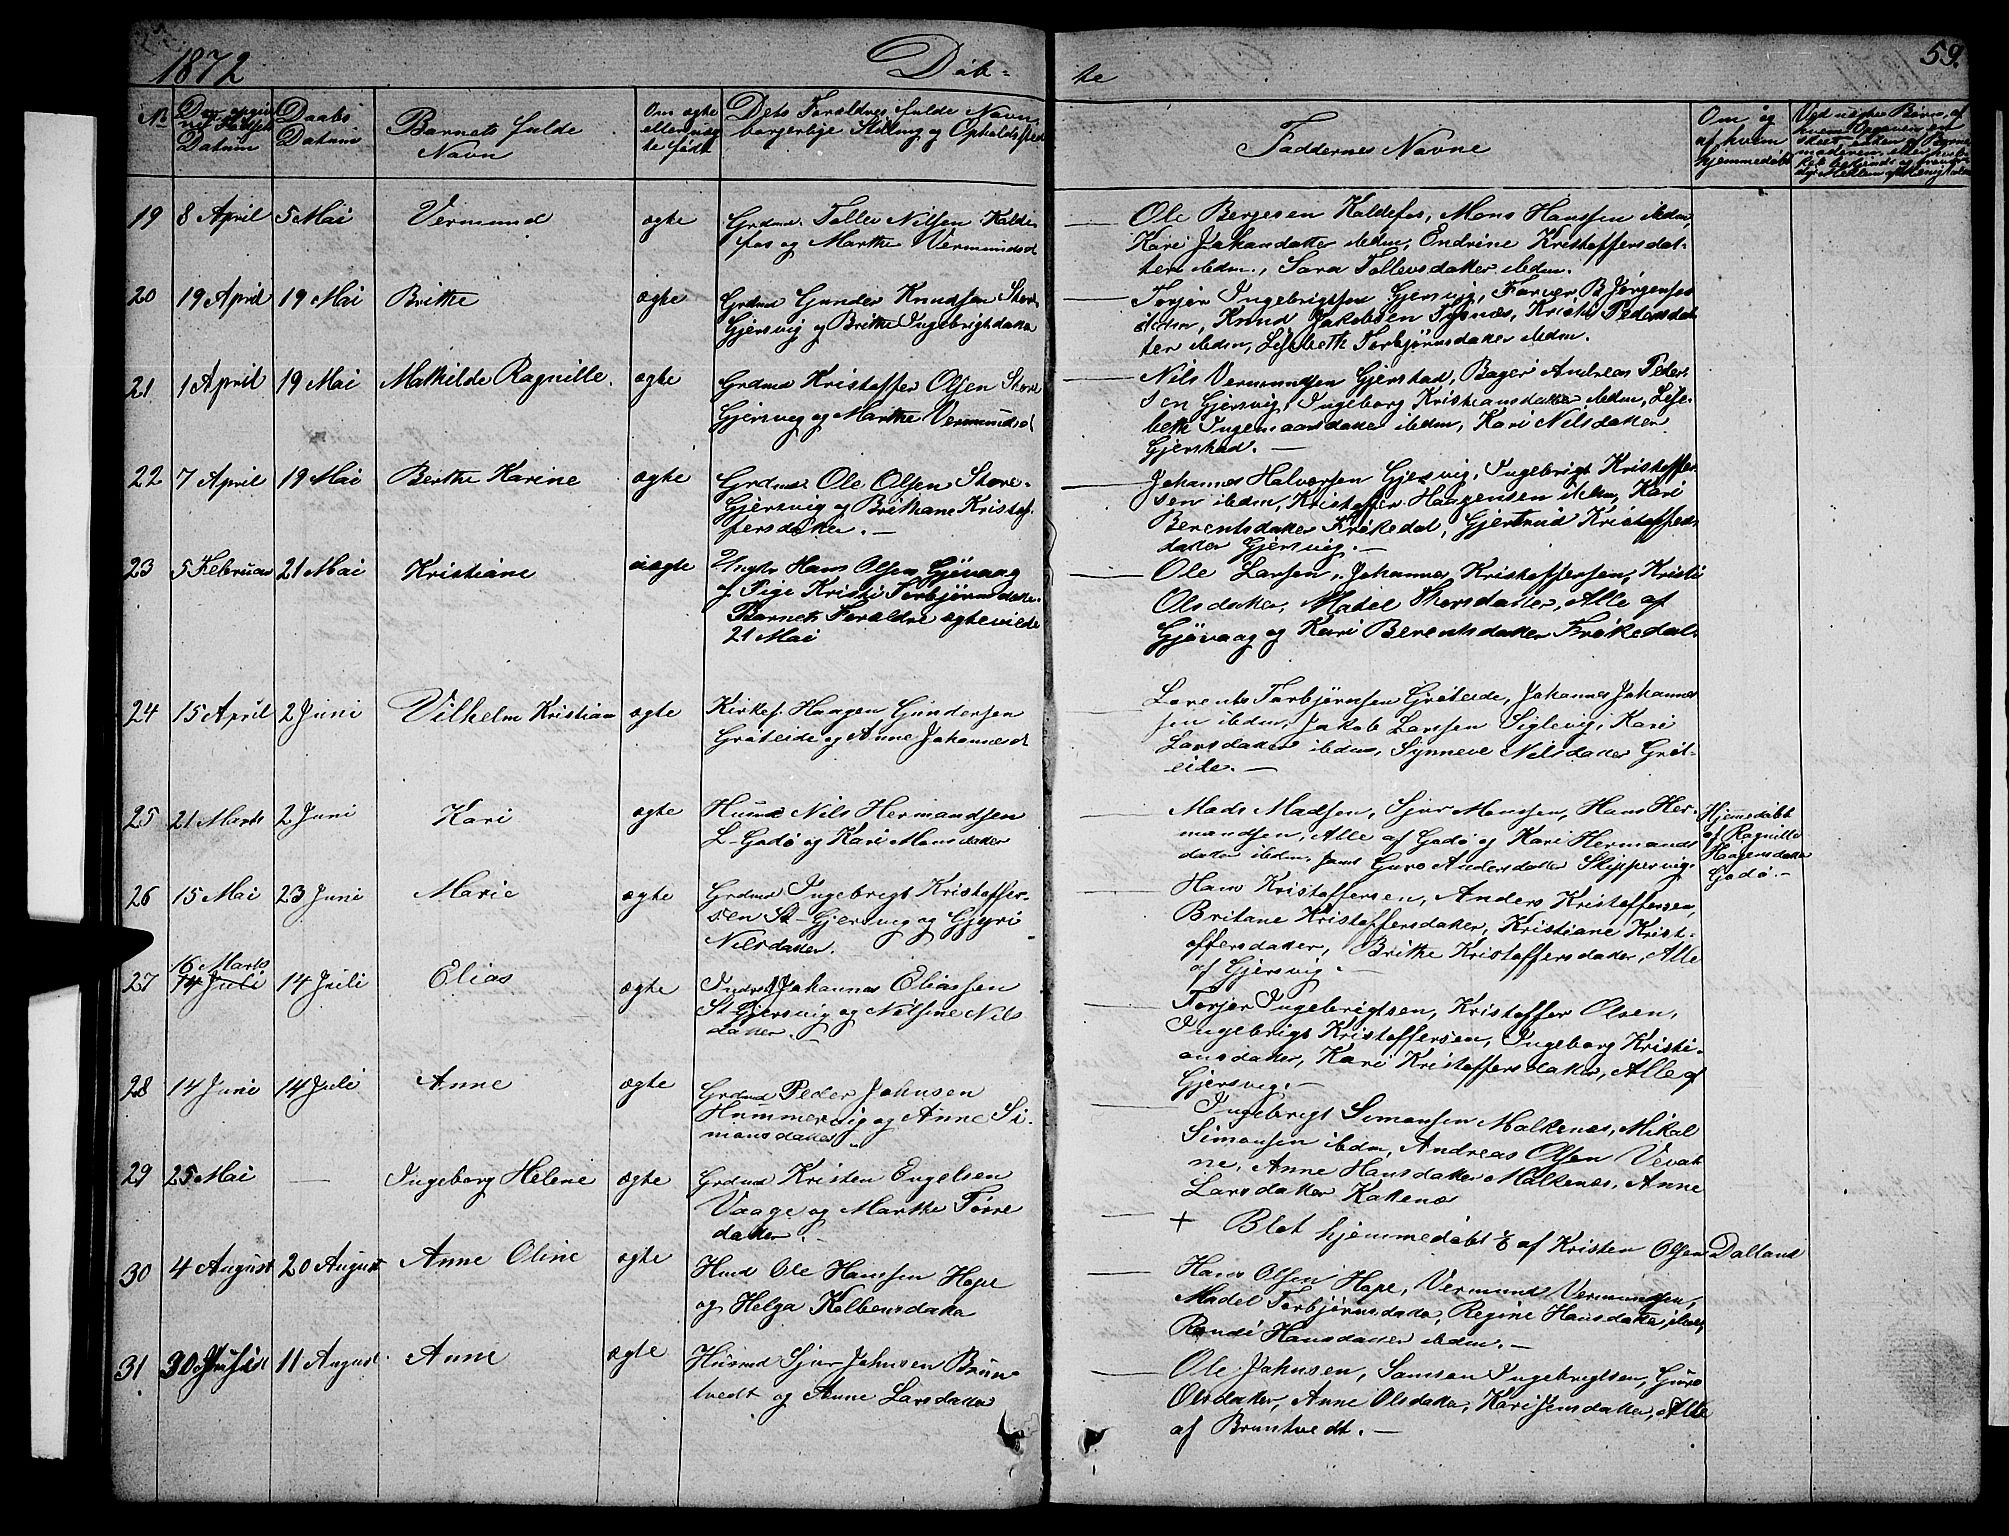 1872
Döb-
te
59.
No
Datum
Daabs
Datum
Barnets fulde
Navn
Om ægte
eller uæg
te født
Dets Forældres fulde Navn,
borgerlige Stilling og Opholdssted
Faddernes Navne
Om og
af hvem
hjemmedøbt
19 8 April 5 Mai Vermund ægte
Grdmd. Tollev Nilsen Kalde-
fos og Marthe Vermundsd
Ole Bergesen Kaldefos, Mons Hanssen ibdm,
Kari Johansdatter ibdm, Endrine Kristoffersdat-
ter ibdm., Sara Tollevsdatter ibdm.
20 19 April 19 Mai Brithe ægte
Grdmd Gunder Knudsen Store
Gjersvig og Brithe Ingebrigtdatter
Torjør Ingebrigtsen Gjersvig, Farver B Jørgensen
ibdm, Knud Jakobsen Tysnæs, Kristi Pedersdat
ter ibdm, Lisbeth Torbjørnsdatter ibdm.
21 1 April 19 Mai Mathilde Ragnille. ægte
Grdmd Kristoffer Olsen Store
Gjersvig og Marthe Vermundsd
Nils Vermundsen Gjerstad, Bager Andreas Peder-
sen Gjersvig, Ingeborg Kristiansdatter ibdm, Lis-
beth Ingemaarsdatter ibdm, Kari Nilsdatter
Gjerstad. —
22 7 April 19 Mai Berthe Karine ægte
Grdmd Ole Olsen Store-
Gjersvig og Brithane Kristof-
fersdatter. —
Johannes Halvorsen Gjersvig, Ingebrigt Kristoffer
sen ibdm, Kristoffer Haagensen ibdm, Kari
Berentsdatter Frøkedal, Gjertrud Kristoffers
datter Gjersvig. —
23 5 Februar 21 Mai Kristiane uægte
Ungkr Hans Olsen Gjøvaag
og Pige Kristi Torbjørnsdatter.
Barnets Forældre ægteviede
21 Mai
Ole Larsen, Johannes Kristoffersen, Kristi
Olsdatter, Madel Thorsdatter, Alle af
Gjøvaag og Kari Berentsdatter Frøkedal.
24 15 April 2 Juni Vilhelm Kristian ægte
Kirkes. Haagen Gundersen
Grøteide og Anne Johannesd
Lorents Torbjørnsen Grøteide, Johannes Johannes
sen ibdm, Jakob Larssen Siglevig, Kari
Larsdatter ibdm, Synneve Nilsdatter Grøt-
eide. —
25 21 Marts 2 Juni Kari ægte
Husmd Nils Hermandsen
L-Godø og Kari Monsdatter
Mads Madsen, Sjur Monsen, Hans Her-
mandsen, Alle af Godø og Kari Hermands
datter ibdm. samt Guro Andersdatter Skippervig.
Hjemedöbt
af Ragnille
Haagensdatter
Godø. —
26 15 Mai 23 Juni Marie ægte
Grdmd Ingebrigt Kristoffer-
sen St-Gjersvig og Gjyri
Nilsdatter.
Hans Kristoffersen, Anders Kristoffersen,
Britane Kristoffersdatter, Kristiane Krist-
offersdatter, Brithe Kristoffersdatter, Alle
af Gjersvig. —
16 Marts
27 14 Juli 14 Juli Elias ægte
Indrst Johannes Eliassen
St-Gjersvig og Nilsine Nils
datter. —
Torjer Ingebrigtsen, Kristoffer Olsen,
Ingebrigt Kristoffersen, Ingeborg Kristi-
ansdatter, Kari Kristoffersdatter, Alle af
Gjersvig. —
28 14 Juni 14 Juli Anne ægte
Grdmd Peder Johnsen
Hummervig og Anne Si-
monsdatter
Ingebrigt Simonsen Malkenæs, Mikal
Simonsen ibdm, Andreas Olsen Vevat-
ne, Anne Hansdatter Malkenæs, Anne
Larsdatter Kattenæs
29 25 Mai — Ingeborg Helene ægte
Grdmd Kristen Engelsen
Vaage og Marthe Torre
datter. —
+ Blot hjemmedøbt af Kristen Olsen Dalland
30 4 August 20 August Anne Oline ægte
Husmd Ole Hanssen Hope
og Helga Kolbensdatter
Hans Olsen Hope, Vermund Vermundsen,
Madel Torbjørnsdatter, Regine Hansdatter, ibdm,
Randi Hansdatter ibdm. —
31 30 11 August Anne ægte
Husmd Sjur Johnsen Brun
tvedt og Anne Larsdatter
Ole Johnsen, Samson Ingebrigtsen, Guro
Olsdatter, Anne Olsdatter, Kari Jensdatter, Alle
af Bruntvedt. —